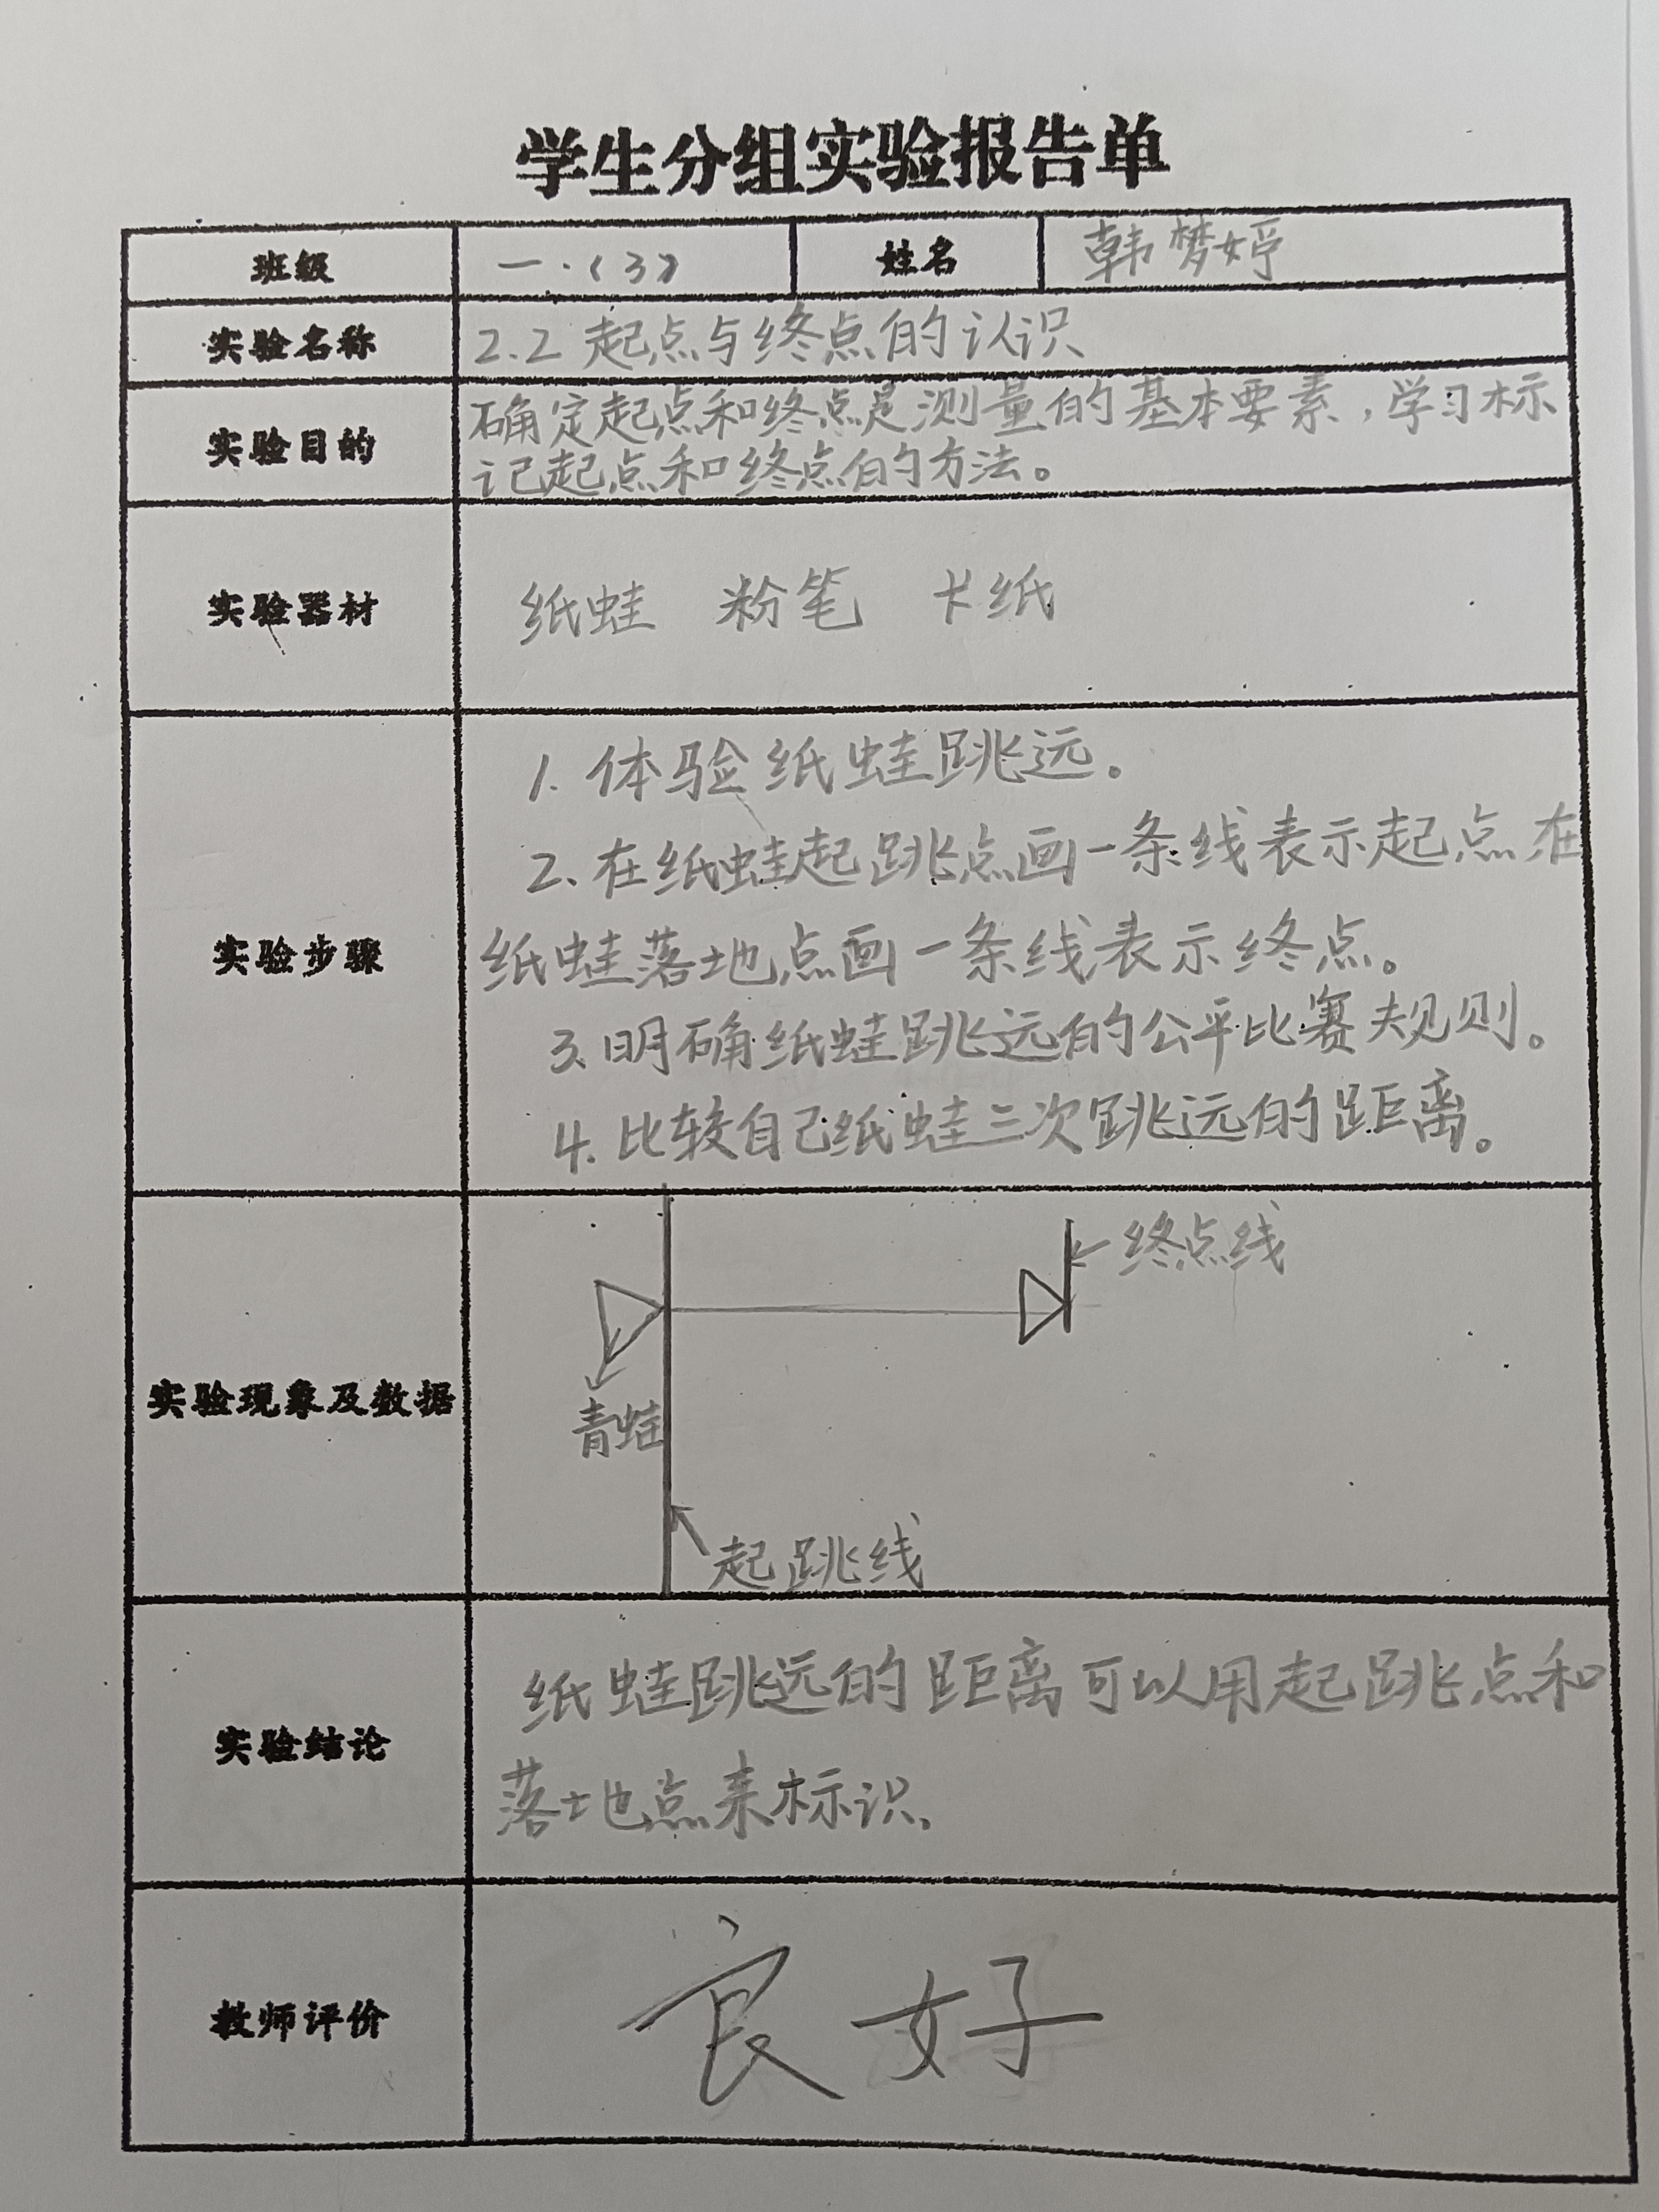 学生分组实验报告单
班级 一.(3) 姓名 韩梦婷
实验名称 2.2 起点与终点的认识
实验目的 确定起点和终点是测量的基本要素，学习标
记起点和终点的方法。
实验器材 纸蛙 粉笔 卡纸
1. 体验纸蛙跳远。
2、在纸蛙起跳点画一条线表示起点 在
实验步骤 纸蛙落地点画一条线表示终点。
3、明确纸蛙跳远的公平比赛规则。
4. 比较自己纸蛙三次跳远的距离。
终点线
实验现象及数据
青蛙
起跳线
纸蛙跳远的距离可以用起跳点和
实验结论
落地点来标识.
教师评价 良好